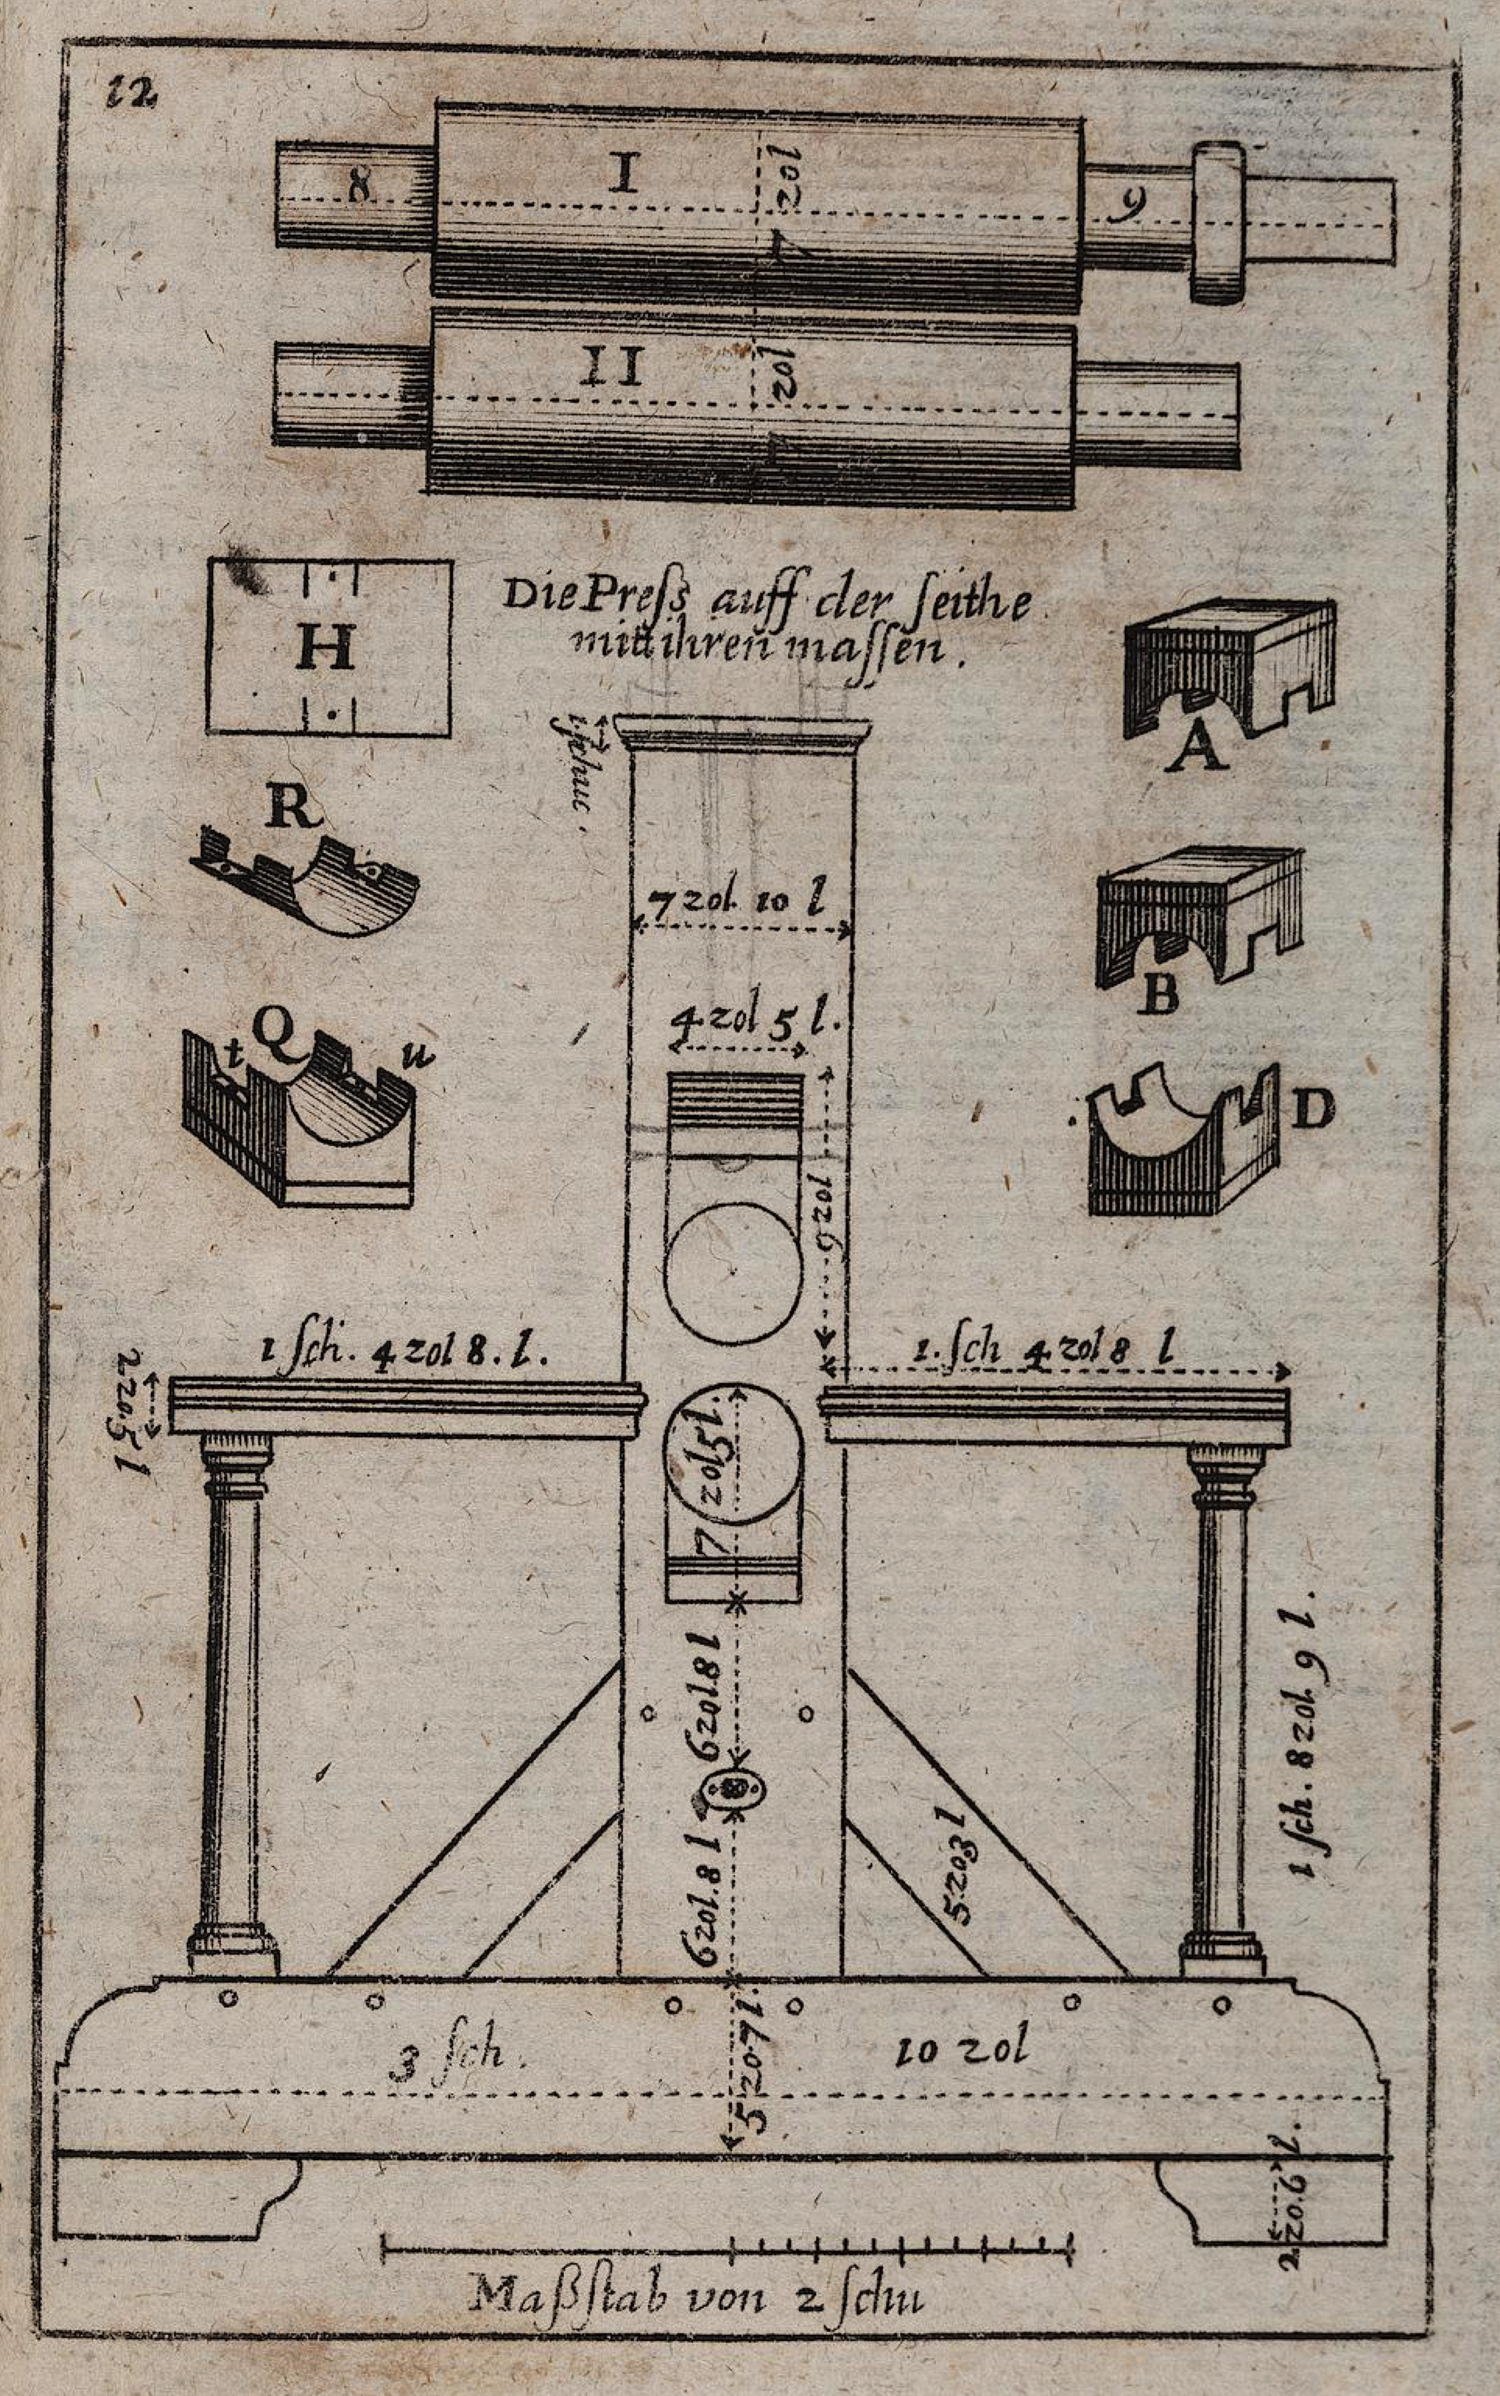 12
8
I
7 zol
9
II
7 zol
H
Die Preſs auff der ſeithe
mitt ihren maſſen.
A
R
7 zol 10 l
B
4 zol 5 l.
Q
t
u
D
9 zol
1 ſch. 4 zol 8. l.
1. ſch 4 zol 8 l
2 zo. 5 l
7 zol 5 l.
6 zol 8 l
1 ſch. 8 zol. 9 l.
6 zol. 8 l
5 zo 3 l
3 ſch.
10 zol
5 zo 7 l.
2 zo. 6 l.
Maßſtab von 2 ſchu